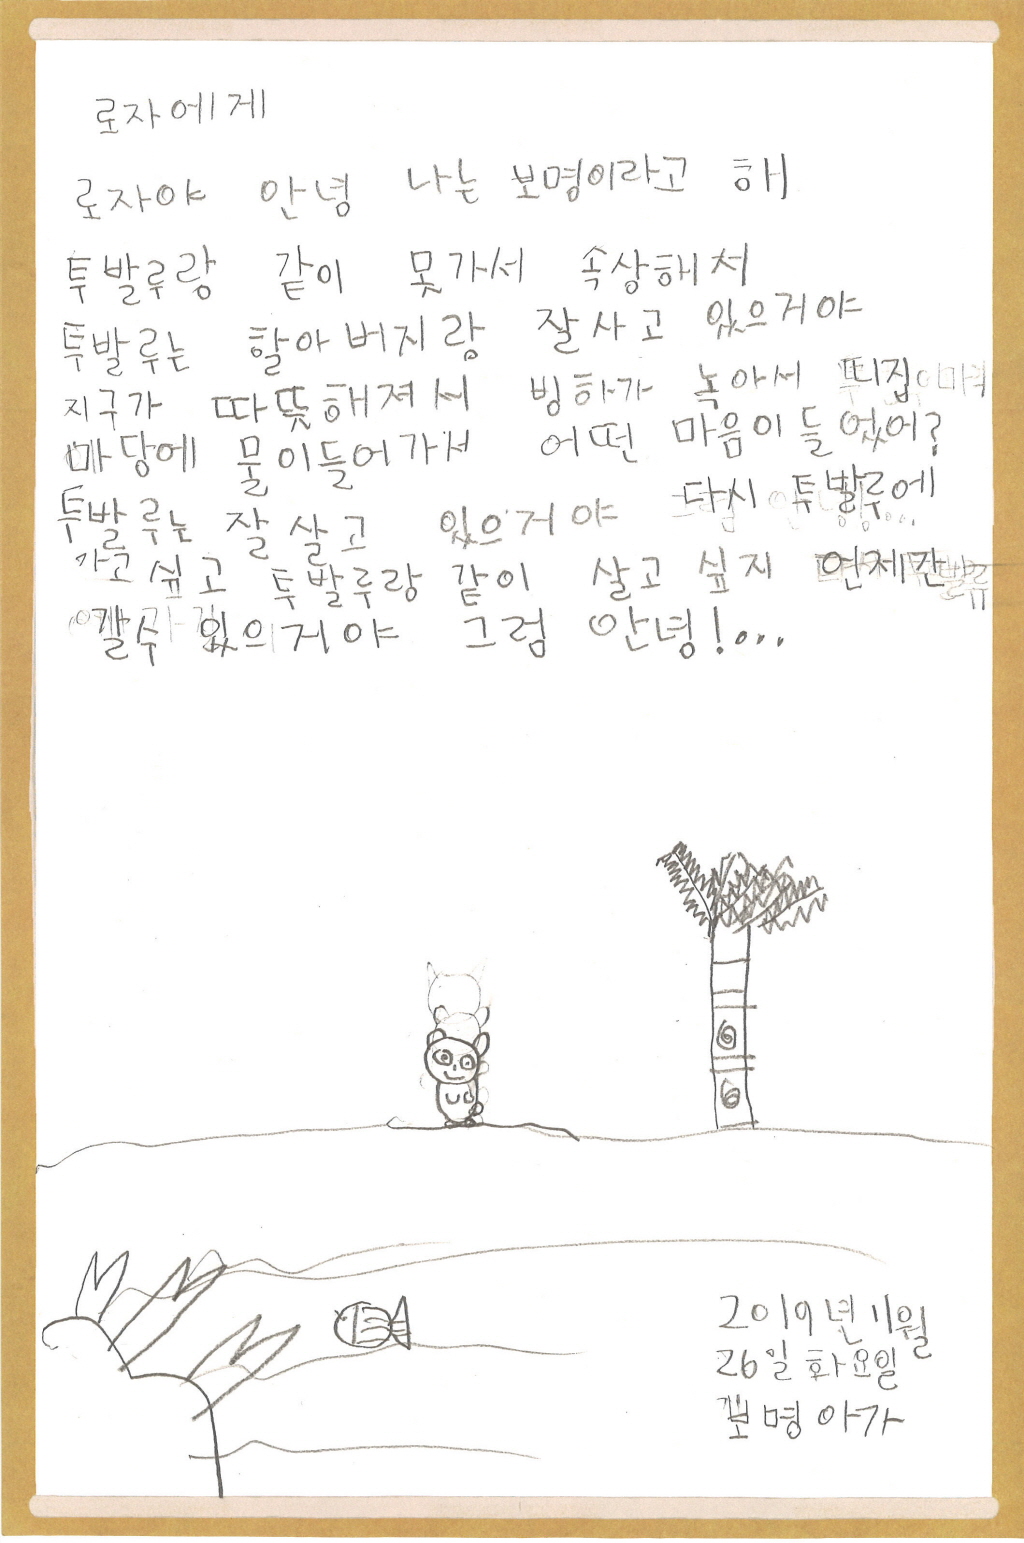 로자에게
로자야 안녕 나는 보명이라고 해
투발루랑 같이 못가서 속상해서
투발루는 할아버지랑 잘사고 있으거야
지구가 따뜻해져서 빙하가 녹아서 띠집
마당에 물이들어가서 어떤 마음이 들었어?
투발루는 잘 살고 있으거야 다시 투발루에
가고 싶고 투발루랑 같이 살고 싶지 언제간
갈수 있의거야 그럼 안녕!...
2019년 11월
26일 화요일
보명아가